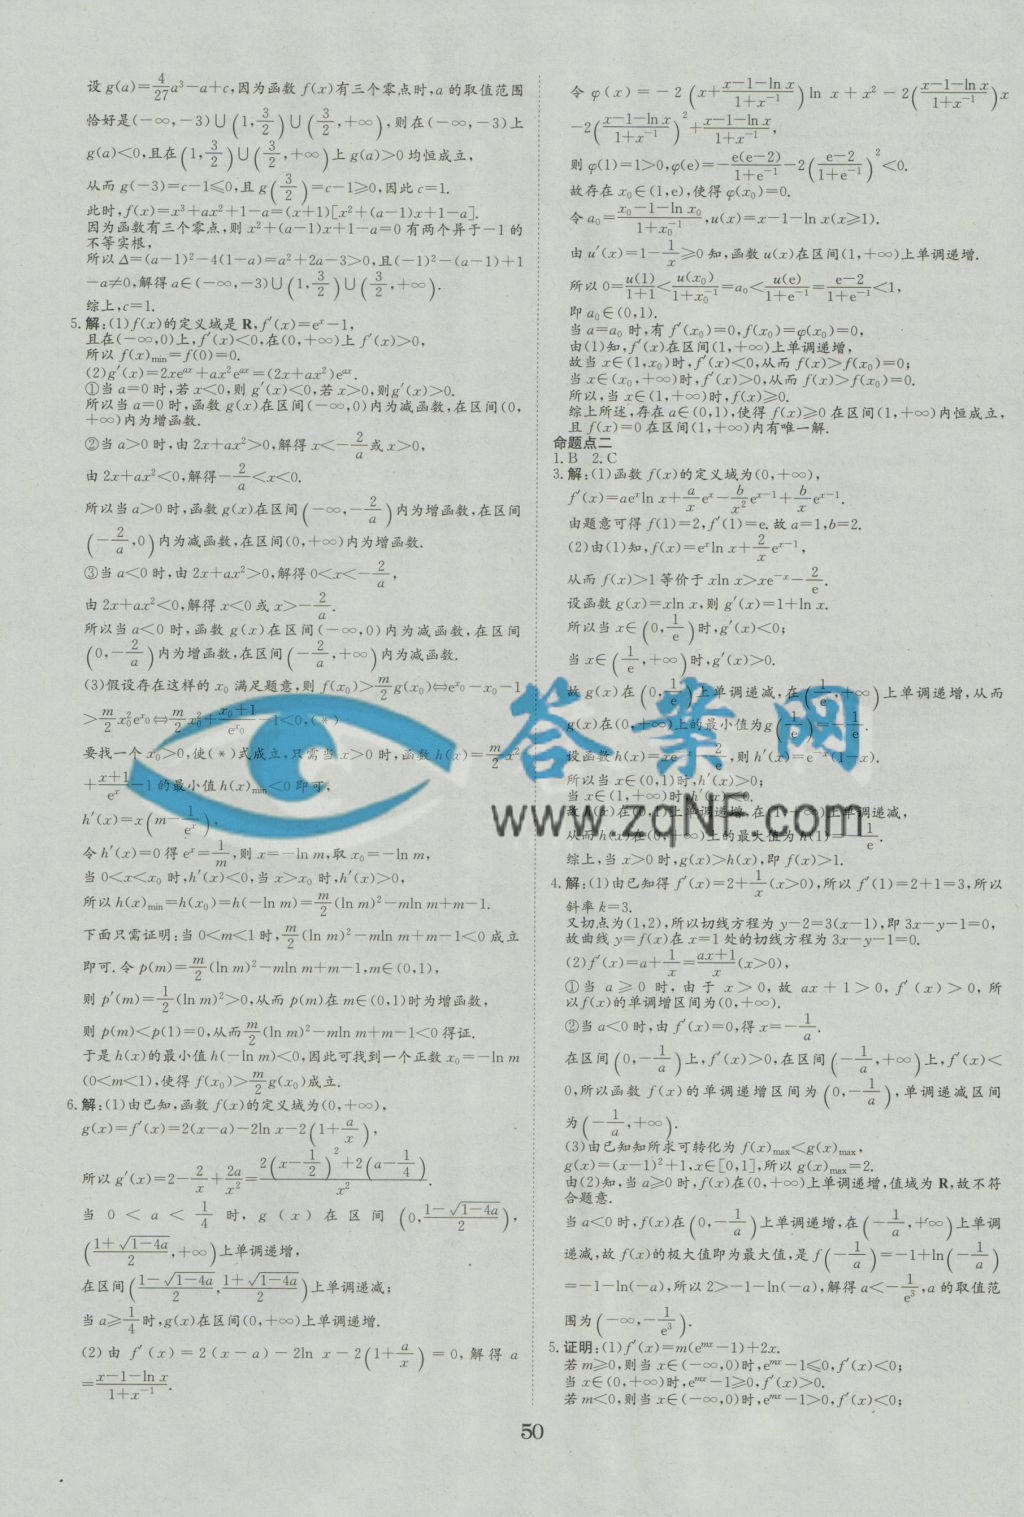 设g(a)=4/27a³-a+c,因为函数f(x)有三个零点时,a的取值范围
恰好是(-∞,-3)∪(1,3/2)∪(3/2,+∞),则在(-∞,-3)上
g(a)<0,且在(1,3/2)∪(3/2,+∞)上g(a)>0均恒成立,
从而g(-3)=c-1≤0,且g(3/2)=c-1≥0,因此c=1.
此时,f(x)=x³+ax²+1-a=(x+1)[x²+(a-1)x+1-a].
因为函数有三个零点,则x²+(a-1)x+1-a=0有两个异于-1的
不等实根,
所以Δ=(a-1)²-4(1-a)=a²+2a-3>0,且(-1)²-(a-1)+1
-a≠0,解得a∈(-∞,-3)∪(1,3/2)∪(3/2,+∞).
综上,c=1.
5.解:(1)f(x)的定义域是R,f′(x)=eˣ-1,
且在(-∞,0)上,f′(x)<0,在(0,+∞)上f′(x)>0,
所以f(x)min=f(0)=0.
(2)g′(x)=2xe^(ax)+ax²e^(ax)=(2x+ax²)e^(ax).
①当a=0时,若x<0,则g′(x)<0,若x>0,则g′(x)>0.
所以当a=0时,函数g(x)在区间(-∞,0)内为减函数,在区间(0,
+∞)内为增函数.
②当a>0时,由2x+ax²>0,解得x<-2/a或x>0,
由2x+ax²<0,解得-2/a<x<0.
所以当a>0时,函数g(x)在区间(-∞,-2/a)内为增函数,在区间
(-2/a,0)内为减函数,在区间(0,+∞)内为增函数.
③当a<0时,由2x+ax²>0,解得0<x<-2/a,
由2x+ax²<0,解得x<0或x>-2/a.
所以当a<0时,函数g(x)在区间(-∞,0)内为减函数,在区间
(0,-2/a)内为增函数,在区间(-2/a,+∞)内为减函数.
(3)假设存在这样的x₀满足题意,则f(x₀)>m/2g(x₀)⇔e^(x₀)-x₀-1
>m/2x₀²e^(x₀)⇔m/2x₀²+(x₀+1)/e^(x₀)-1<0,(*)
要找一个x₀>0,使(*)式成立,只需当x>0时,函数h(x)=m/2x²
+(x+1)/eˣ-1的最小值h(x)min<0即可,
h′(x)=x(m-1/eˣ),
令h′(x)=0得eˣ=1/m,则x=-ln m,取x₀=-ln m,
当0<x<x₀时,h′(x)<0,当x>x₀时,h′(x)>0,
所以h(x)min=h(x₀)=h(-ln m)=m/2(ln m)²-mln m+m-1.
下面只需证明:当0<m<1时,m/2(ln m)²-mln m+m-1<0成立
即可.令p(m)=m/2(ln m)²-mln m+m-1,m∈(0,1),
则p′(m)=1/2(ln m)²>0,从而p(m)在m∈(0,1)时为增函数,
则p(m)<p(1)=0,从而m/2(ln m)²-mln m+m-1<0得证.
于是h(x)的最小值h(-ln m)<0,因此可找到一个正数x₀=-ln m
(0<m<1),使得f(x₀)>m/2g(x₀)成立.
6.解:(1)由已知,函数f(x)的定义域为(0,+∞),
g(x)=f′(x)=2(x-a)-2ln x-2(1+a/x),
所以g′(x)=2-2/x+2a/x²=(2(x-1/2)²+2(a-1/4))/x².
当0<a<1/4时,g(x)在区间(0,(1-√(1-4a))/2),
((1+√(1-4a))/2,+∞)上单调递增,
在区间((1-√(1-4a))/2,(1+√(1-4a))/2)上单调递减;
当a≥1/4时,g(x)在区间(0,+∞)上单调递增.
(2)由f′(x)=2(x-a)-2ln x-2(1+a/x)=0,解得a
=(x-1-ln x)/(1+x⁻¹).
令φ(x)=-2(x+(x-1-ln x)/(1+x⁻¹))ln x+x²-2((x-1-ln x)/(1+x⁻¹))x
-2((x-1-ln x)/(1+x⁻¹))²+(x-1-ln x)/(1+x⁻¹),
则φ(1)=1>0,φ(e)=-e(e-2)/(1+e⁻¹)-2((e-2)/(1+e⁻¹))²<0.
故存在x₀∈(1,e),使得φ(x₀)=0.
令a₀=(x₀-1-ln x₀)/(1+x₀⁻¹),u(x)=x-1-ln x(x≥1).
由u′(x)=1-1/x≥0知,函数u(x)在区间(1,+∞)上单调递增.
所以0=u(1)/(1+1)<u(x₀)/(1+x₀⁻¹)=a₀<u(e)/(1+e⁻¹)=(e-2)/(1+e⁻¹)<1,
即a₀∈(0,1).
当a=a₀时,有f′(x₀)=0,f(x₀)=φ(x₀)=0,
由(1)知,f′(x)在区间(1,+∞)上单调递增,
故当x∈(1,x₀)时,f′(x)<0,从而f(x)>f(x₀)=0;
当x∈(x₀,+∞)时,f′(x)>0,从而f(x)>f(x₀)=0.
所以,当x∈(1,+∞)时,f(x)≥0.
综上所述,存在a∈(0,1),使得f(x)≥0在区间(1,+∞)内恒成立,
且f(x)=0在区间(1,+∞)内有唯一解.
命题点二
1.B 2.C
3.解:(1)函数f(x)的定义域为(0,+∞),
f′(x)=aeˣln x+a/xeˣ-b/x²eˣ⁻¹+b/xeˣ⁻¹.
由题意可得f(1)=2,f′(1)=e.故a=1,b=2.
(2)由(1)知,f(x)=eˣln x+2/xeˣ⁻¹,
从而f(x)>1等价于xln x>xe⁻ˣ-2/e.
设函数g(x)=xln x,则g′(x)=1+ln x.
所以当x∈(0,1/e)时,g′(x)<0;
当x∈(1/e,+∞)时,g′(x)>0.
故g(x)在(0,1/e)上单调递减,在(1/e,+∞)上单调递增,从而
g(x)在(0,+∞)上的最小值为g(1/e)=-1/e.
设函数h(x)=xe⁻ˣ-2/e,则h′(x)=e⁻ˣ(1-x).
所以当x∈(0,1)时,h′(x)>0;
当x∈(1,+∞)时,h′(x)<0.
故h(x)在(0,1)上单调递增,在(1,+∞)上单调递减,
从而h(x)在(0,+∞)上的最大值为h(1)=-1/e.
综上,当x>0时,g(x)>h(x),即f(x)>1.
4.解:(1)由已知得f′(x)=2+1/x(x>0),所以f′(1)=2+1=3,所以
斜率k=3.
又切点为(1,2),所以切线方程为y-2=3(x-1),即3x-y-1=0,
故曲线y=f(x)在x=1处的切线方程为3x-y-1=0.
(2)f′(x)=a+1/x=(ax+1)/x(x>0),
①当a≥0时,由于x>0,故ax+1>0,f′(x)>0,所
以f(x)的单调增区间为(0,+∞).
②当a<0时,由f′(x)=0,得x=-1/a.
在区间(0,-1/a)上,f′(x)>0,在区间(-1/a,+∞)上,f′(x)<
0,所以函数f(x)的单调递增区间为(0,-1/a),单调递减区间
为(-1/a,+∞).
(3)由已知知所求可转化为f(x)max<g(x)max,
g(x)=(x-1)²+1,x∈[0,1],所以g(x)max=2.
由(2)知,当a≥0时,f(x)在(0,+∞)上单调递增,值域为R,故不符
合题意.
当a<0时,f(x)在(0,-1/a)上单调递增,在(-1/a,+∞)上单调
递减,故f(x)的极大值即为最大值,是f(-1/a)=-1+ln(-1/a)
=-1-ln(-a),所以2>-1-ln(-a),解得a<-1/e³,a的取值范
围为(-∞,-1/e³).
5.证明:(1)f′(x)=m(e^(mx)-1)+2x.
若m≥0,则当x∈(-∞,0)时,e^(mx)-1≤0,f′(x)<0;
当x∈(0,+∞)时,e^(mx)-1≥0,f′(x)>0.
若m<0,则当x∈(-∞,0)时,e^(mx)-1>0,f′(x)<0;
50
答案网
www.zqNF.com